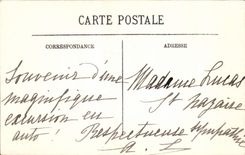 CARTE POSTALE
CORRESPONDANCE
ADRESSE
Souvenir d'une
magnifique
excursion en
auto!
Madame Lucas
St Nazaire
Respectueuse sympathie
A. L